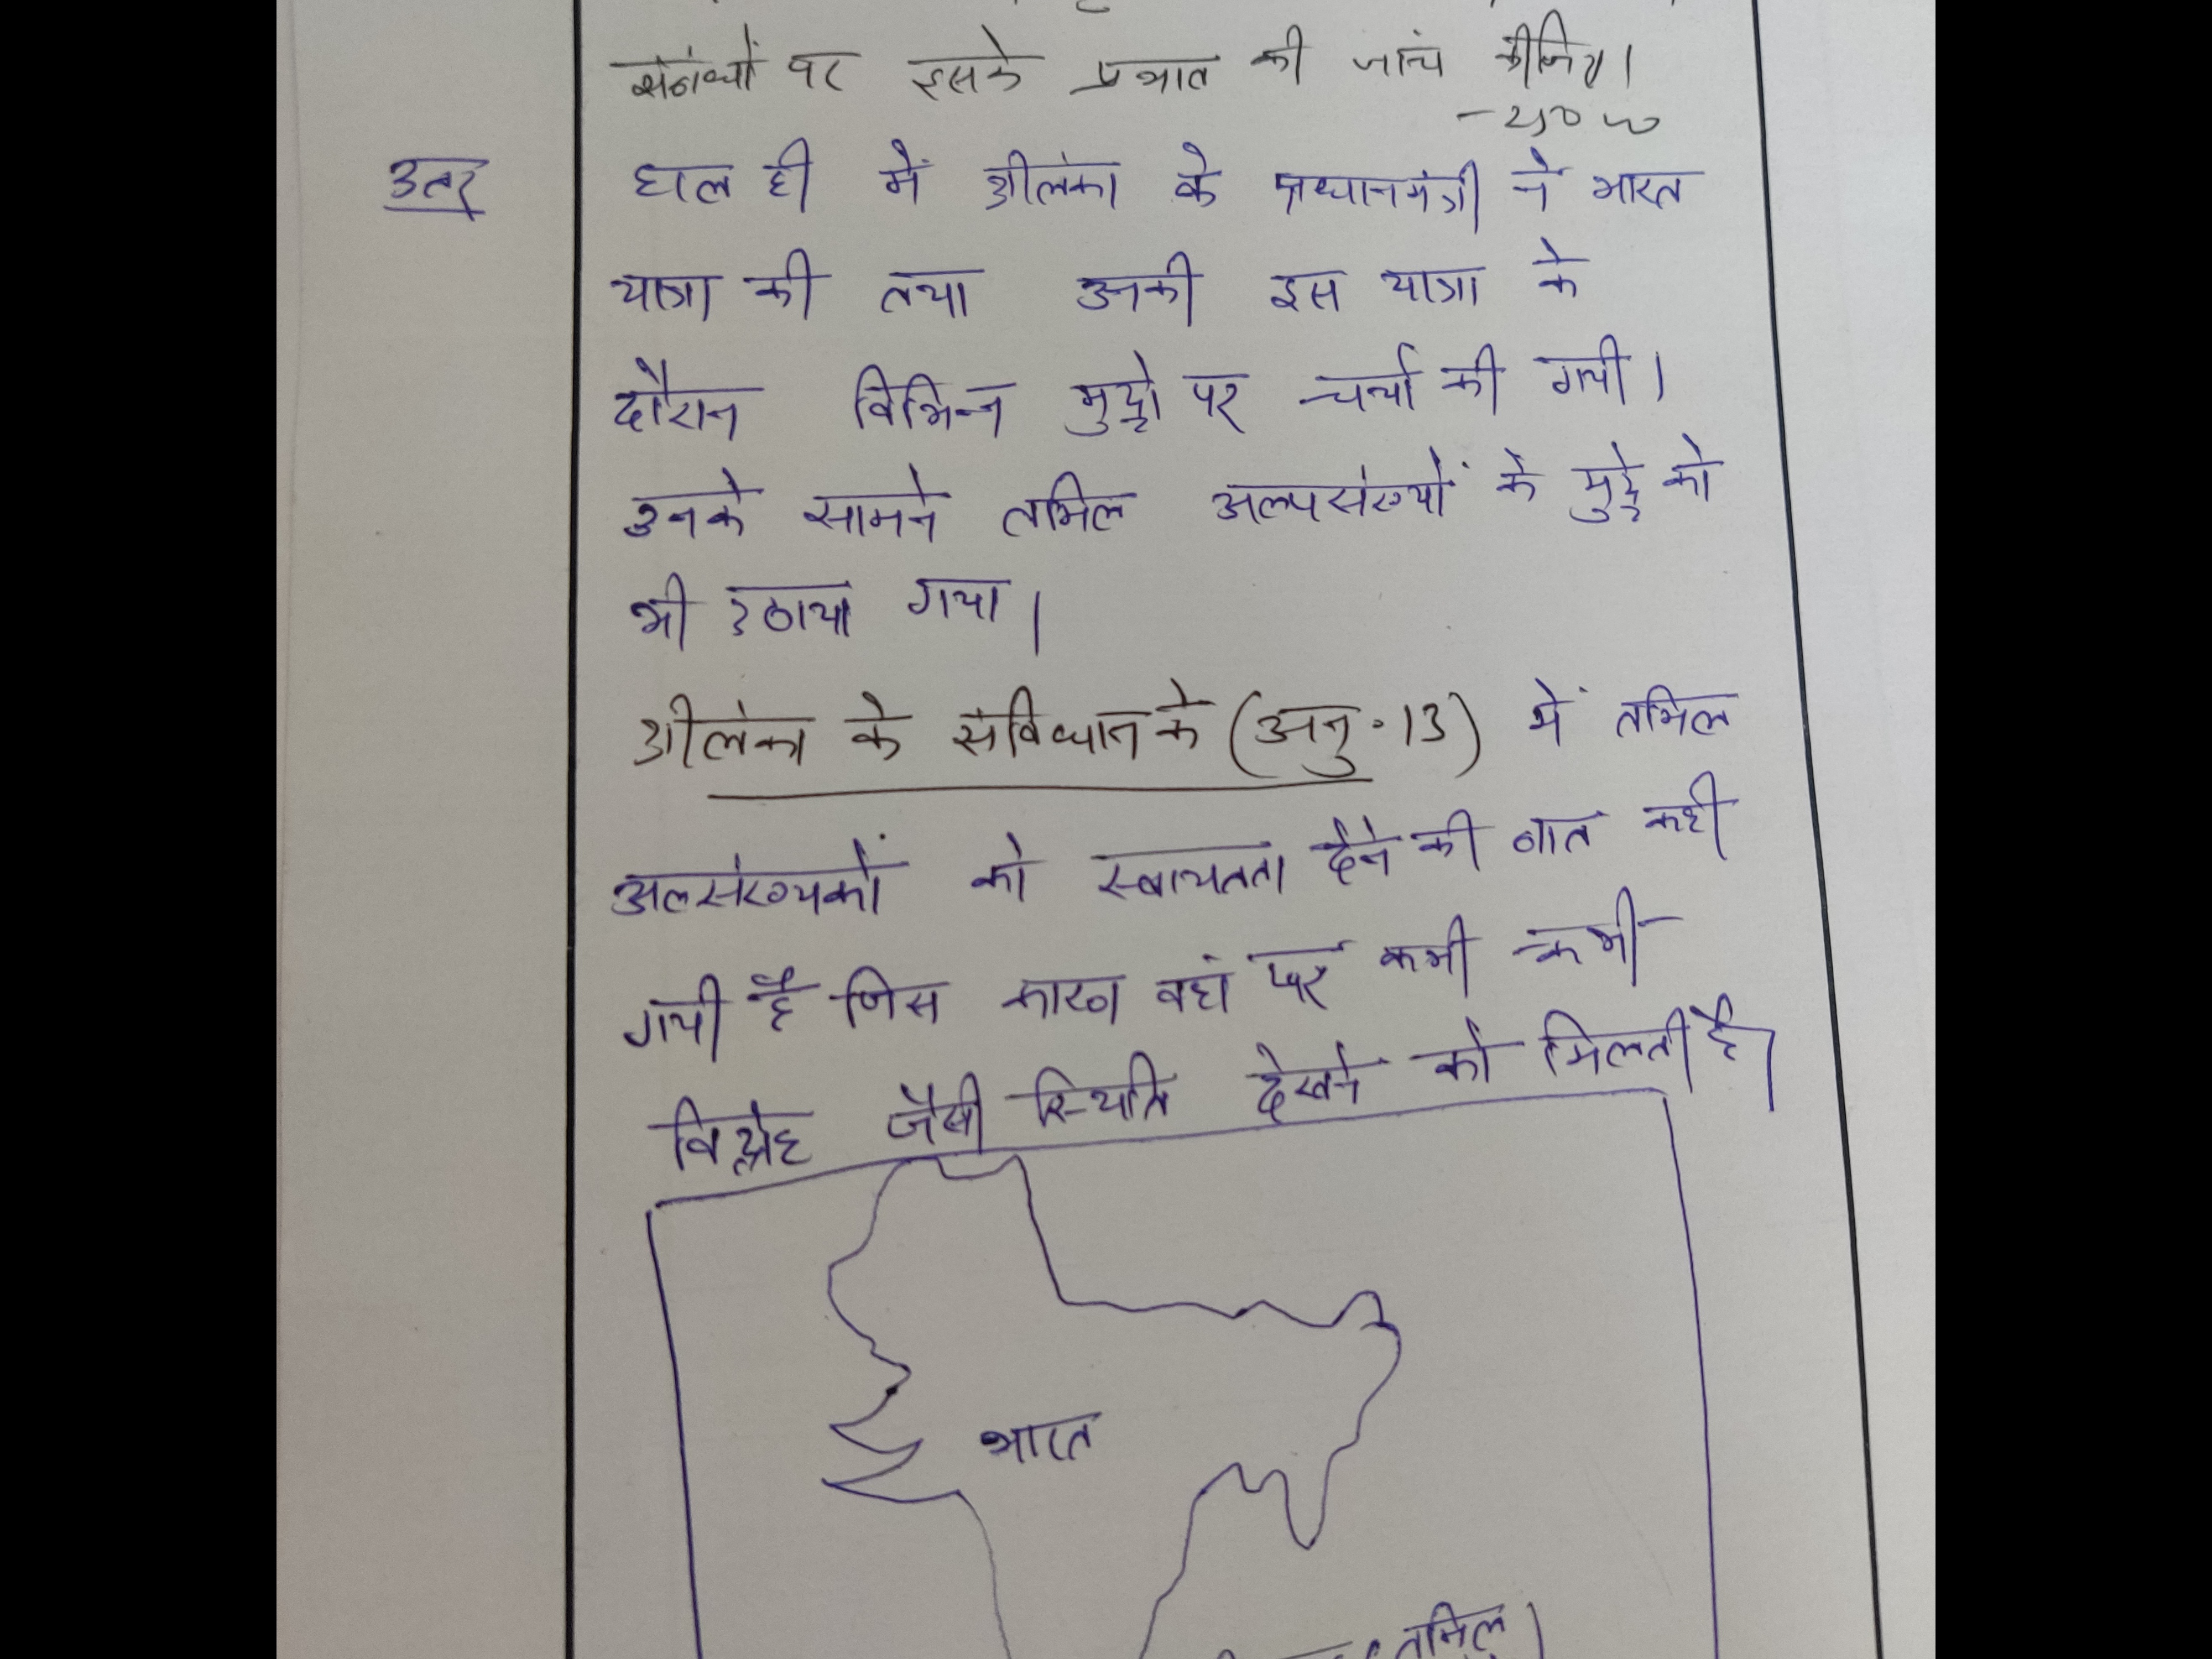 संबंधों पर इसके प्रभाव की जांच कीजिए।
- 250 w
उतर
हाल ही में श्रीलंका के प्रधानमंत्री ने भारत
यात्रा की तथा उनकी इस यात्रा के
दौरान विभिन्न मुद्दो पर चर्चा की गयी।
उनके सामने तमिल अल्पसंख्यों के मुद्दे को
भी उठाया गया।
श्रीलंका के संविधान के (अनु॰ 13) में तमिल
अलसंख्यकों को स्वायतता देने की बात कही
गयी है जिस कारण वहां पर कभी कभी
विद्रोह जैसी स्थिति देखने को मिलती है।
भारत
तमिल